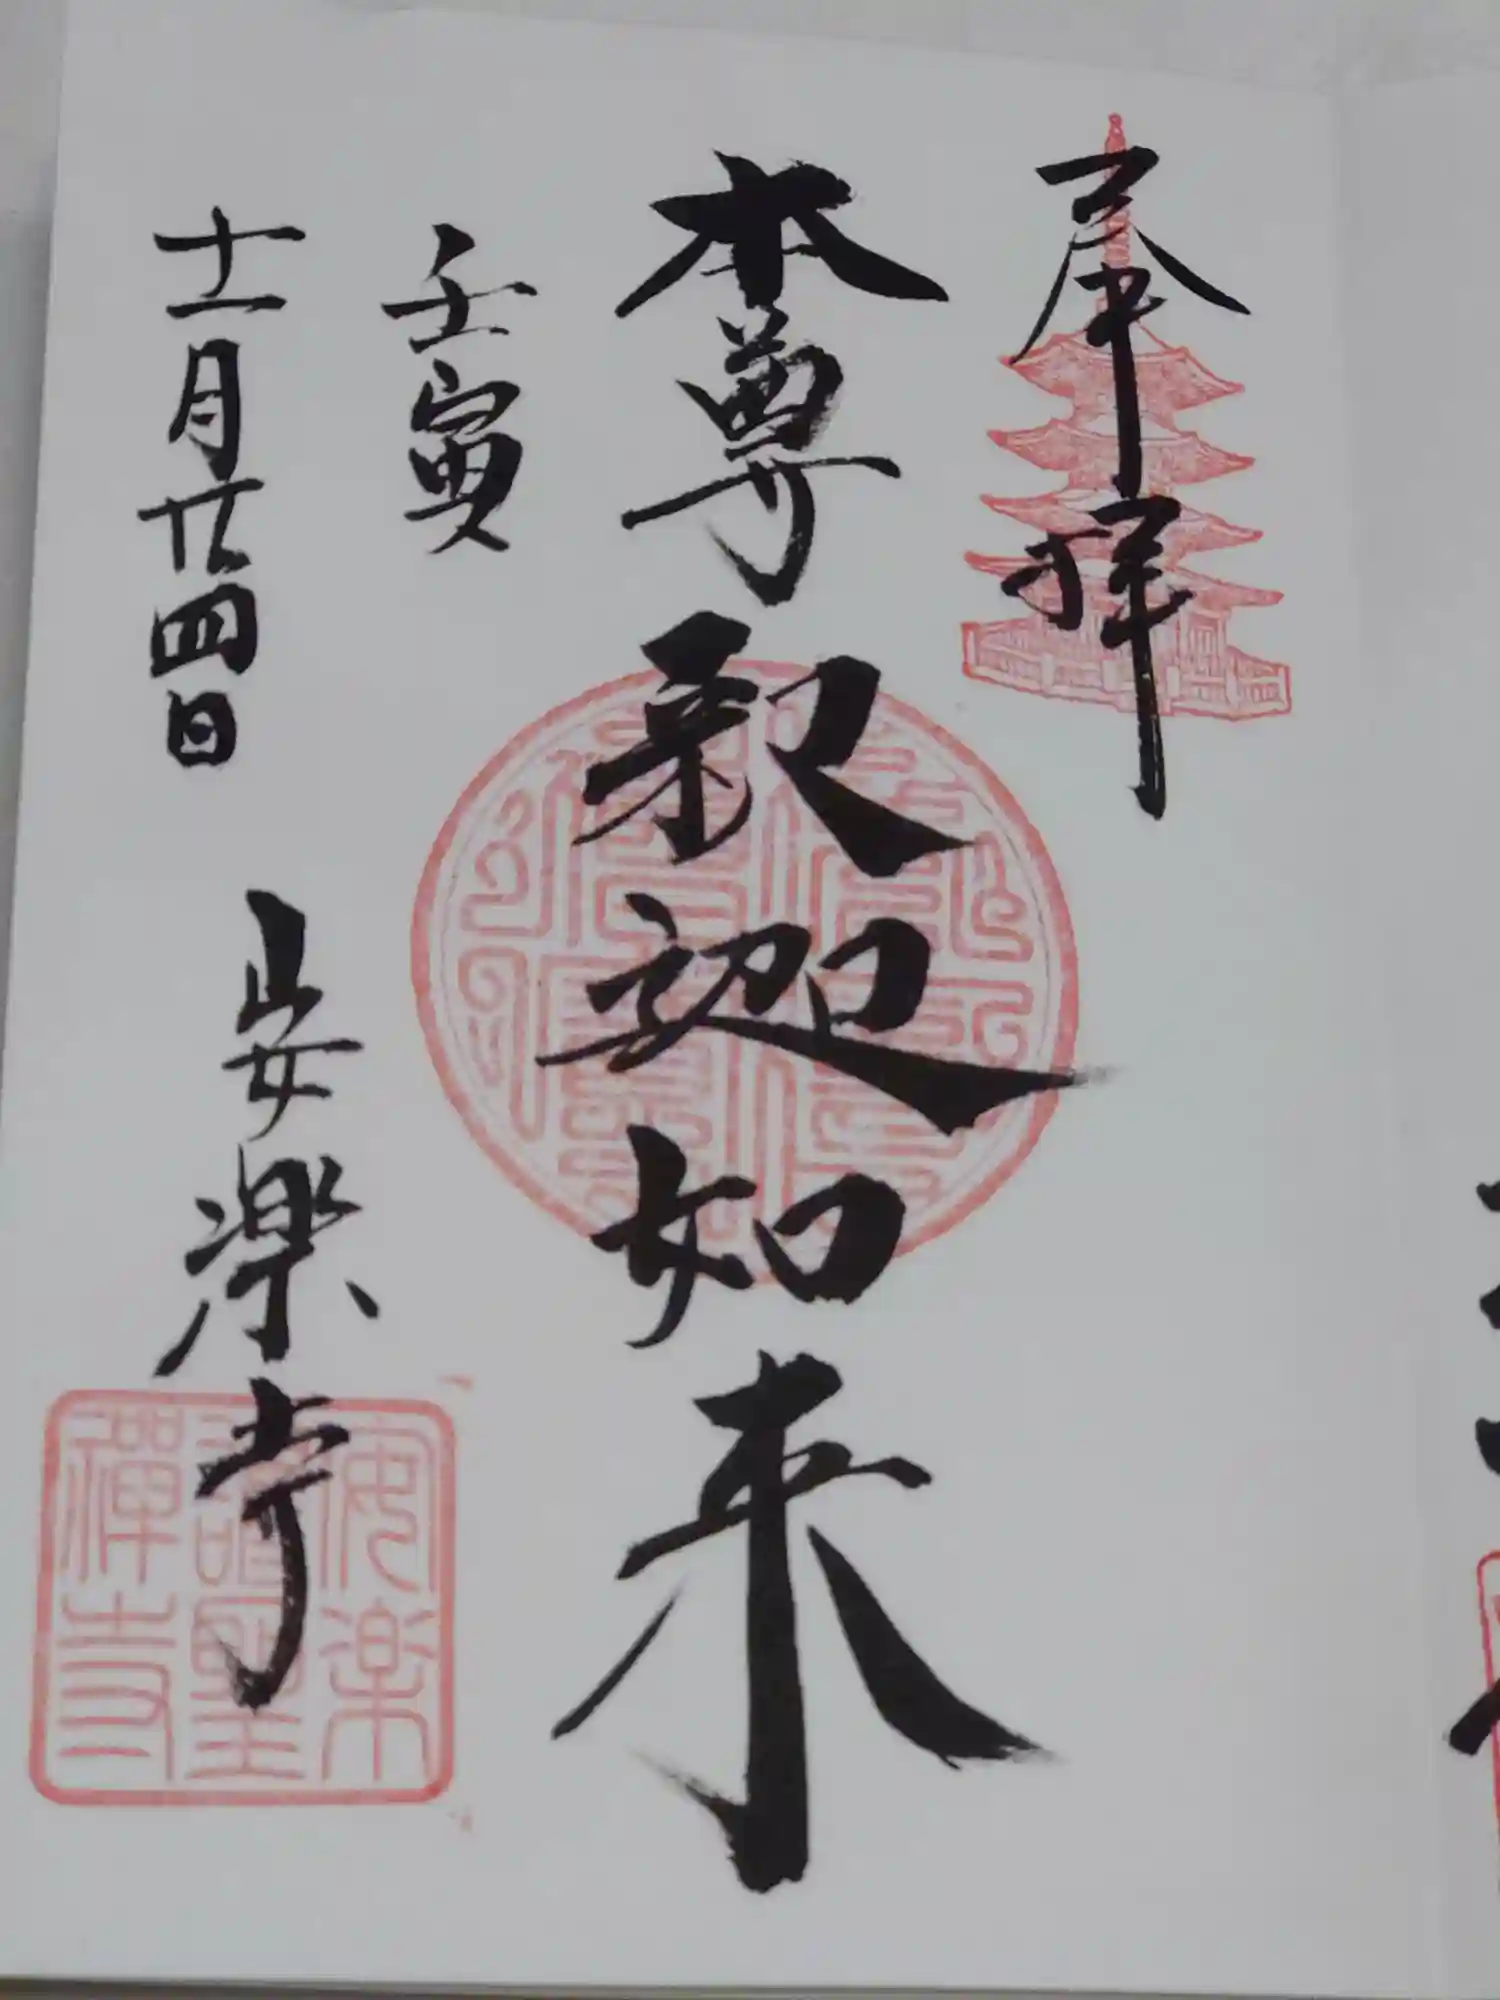 奉拝
本尊釈迦如来
壬寅
十一月廿四日
安楽寺
安楽
護聖
禅寺